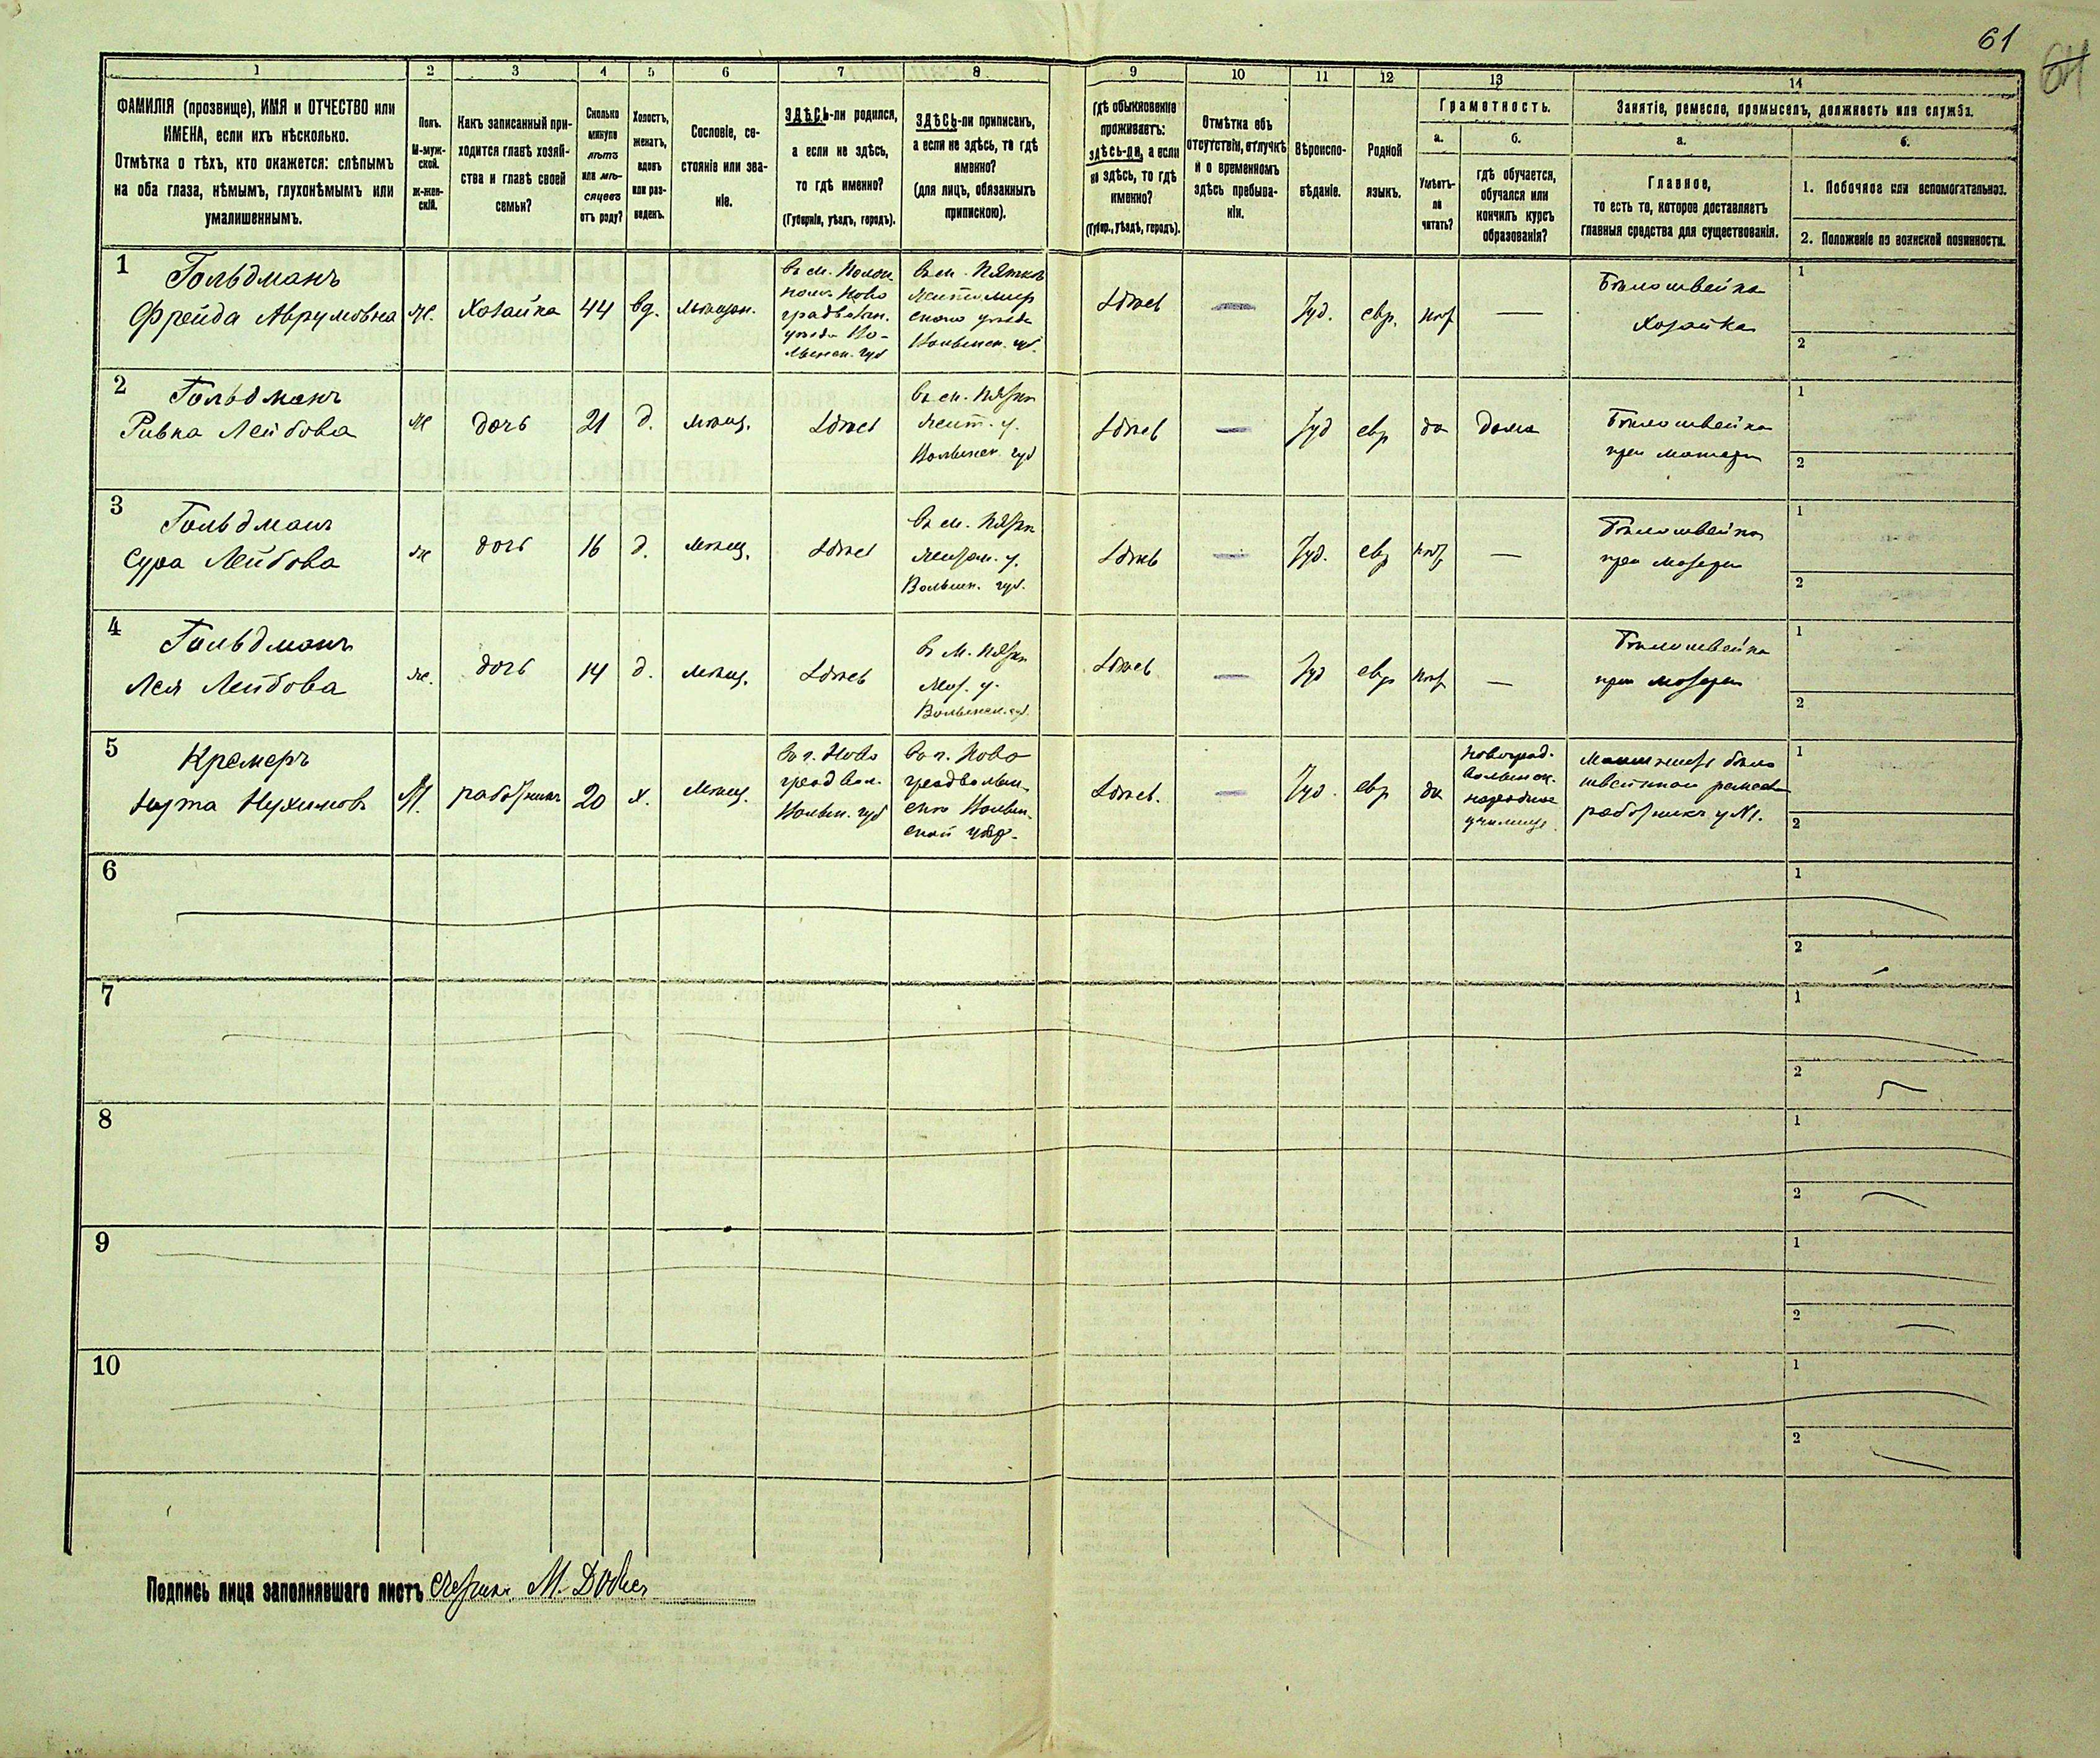 61
64
1 2 3 4 5 6 7 8 9 10 11 12 13 14
ФАМИЛІЯ (прозвище), ИМЯ и ОТЧЕСТВО или
ИМЕНА, если ихъ нѣсколько.
Отмѣтка о тѣхъ, кто окажется: слѣпымъ
на оба глаза, нѣмымъ, глухонѣмымъ или
умалишеннымъ.
Полъ.
М-муж-
ской.
Ж-жен-
скій.
Какъ записанный при-
ходится главѣ хозяй-
ства и главѣ своей
семьи?
Сколько
минуло
лѣтъ
или мѣ-
сяцевъ
отъ роду?
Холостъ,
женатъ,
вдовъ
или раз-
веденъ.
Сословіе, со-
стояніе или зва-
ніе.
ЗДѢСЬ-ли родился,
а если не здѣсь,
то гдѣ именно?
(Губернія, уѣздъ, городъ).
ЗДѢСЬ-ли приписанъ,
а если не здѣсь, то гдѣ
именно?
(для лицъ, обязанныхъ
припискою).
Гдѣ обыкновенно
проживаетъ:
здѣсь-ли, а если
не здѣсь, то гдѣ
именно?
(Губер., уѣздъ, городъ).
Отмѣтка объ
отсутствіи, отлучкѣ
и о временномъ
здѣсь пребыва-
ніи.
Вѣроиспо-
вѣданіе.
Родной
языкъ.
Грамотность.
а.
Умѣетъ-
ли
читать?
б.
гдѣ обучается,
обучался или
кончилъ курсъ
образованія?
Занятіе, ремесло, промыселъ, должность или служба.
а.
Главное,
то есть то, которое доставляетъ
главныя средства для существованія.
б.
1. Побочное или вспомогательное.
2. Положеніе по воинской повинности.
1
Гольдманъ
Фрейда Аврумовна
Ж.
Хозяйка
44
вд.
мѣщан.
въ м. Полон
Ново
градволын.
уѣзда Во-
лынск. губ
въ м. Пяткѣ
Житомир
скаго уѣзда
Волынск. губ.
Здѣсь
—
Іуд.
евр.
нѣт
—
Бѣлошвейка
хозяйка
1
2
2
Гольдманъ
Ривка Лейбова
Ж
дочь
21
д.
мѣщ.
Здѣсь
въ м. Пятк
Жит. у.
Волынск. губ
Здѣсь
—
Іуд
евр
да
дома
Бѣлошвейка
при матери
1
2
3
Гольдманъ
Сура Лейбова
Ж
дочь
16
д.
мѣщ.
Здѣсь
въ м. Пятк
Житом. у.
Волынск. губ.
Здѣсь
—
Іуд.
евр
нѣт
—
Бѣлошвейка
при матери
1
2
4
Гольдманъ
Лея Лейбова
Ж.
дочь
14
д.
мѣщ.
Здѣсь
въ м. Пятк
Жит. у.
Волынск. губ.
Здѣсь
—
Іуд
евр
нѣт
—
Бѣлошвейка
при матери
1
2
5
Кремеръ
Нухимовъ
М.
работникъ
20
х.
Мѣщ.
въ г. Ново
градвол.
Волын. губ
въ г. Ново
градволын-
скѣ Волын-
ской губер.
Здѣсь.
—
Іуд.
евр
да
Новоград.
волынск.
народное
училище
бѣло
швейнаго ремесла
работникъ у N1.
1
2
6
1
2
7
1
2
8
1
2
9
1
2
10
1
2
Подпись лица заполнявшаго листъ